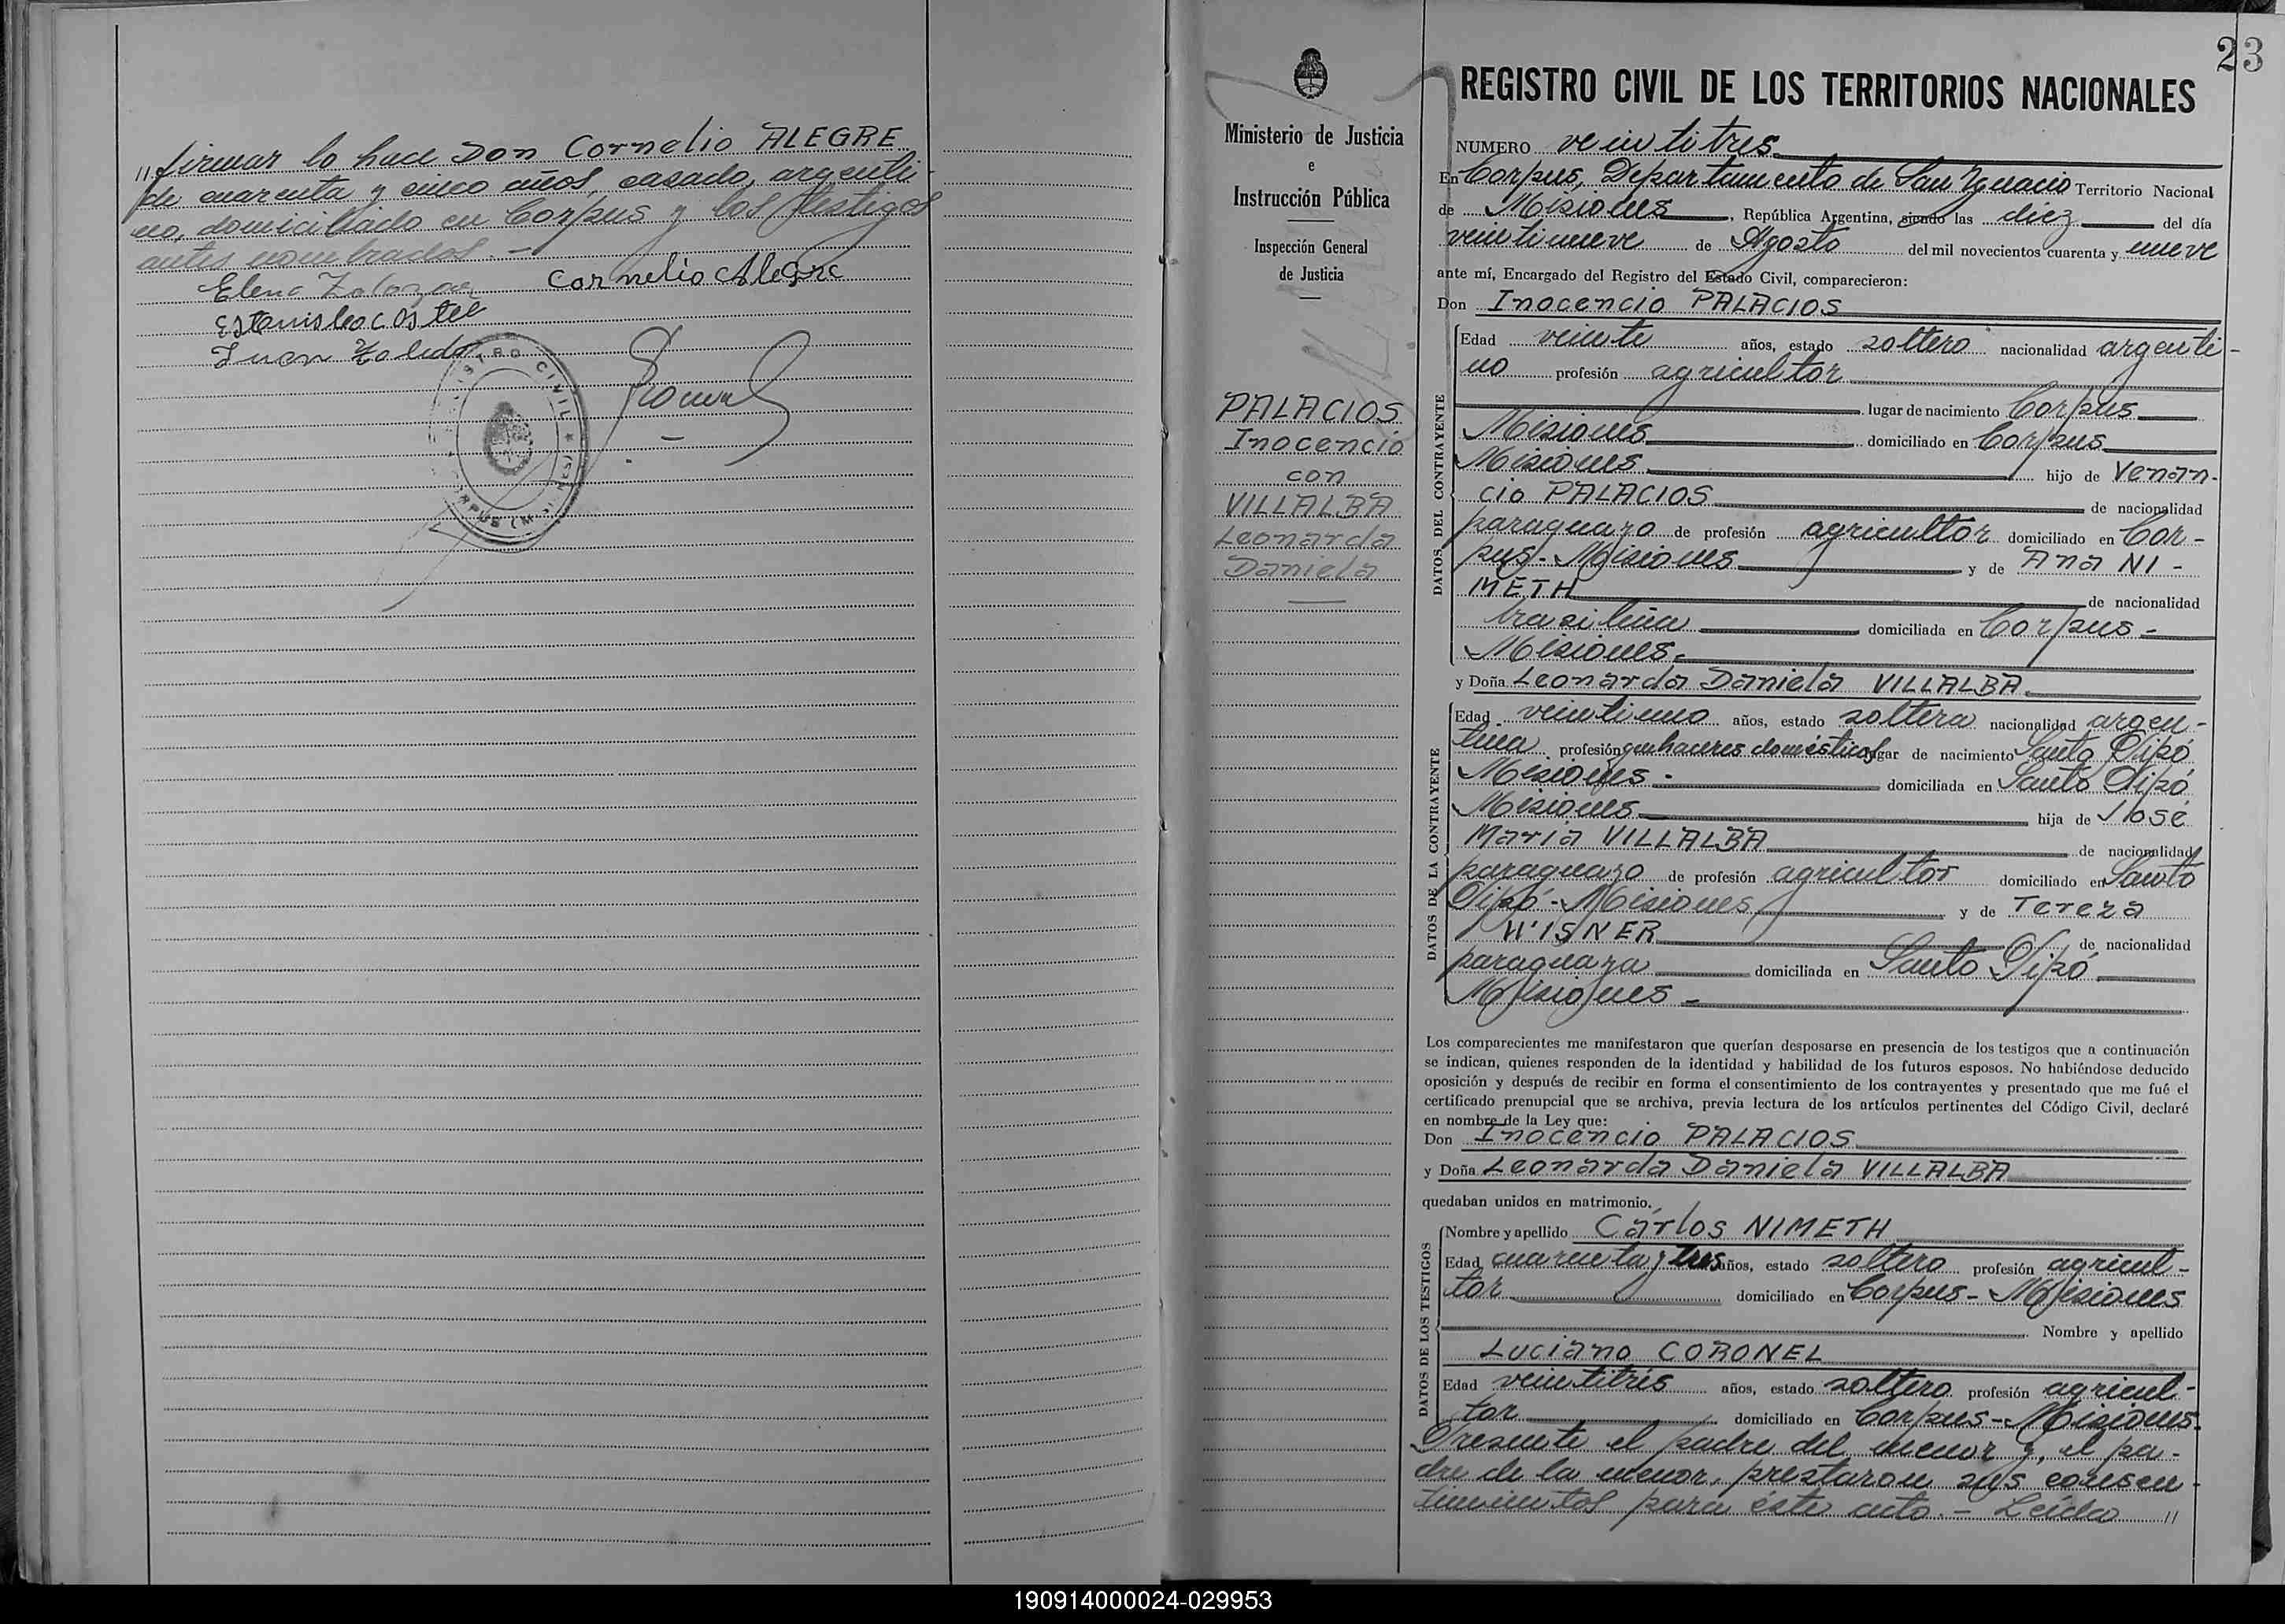 "firmar lo hace Don Cornelio ALEGRE
de cuarenta y cinco años, casado, argenti-
no, domiciliado en Corpus y los testigos
antes nombrados.-
Elena Cornelio Alegre
Juan Toledo
REGISTRO CIVIL
CORPUS (M
23
Ministerio de Justicia
e
Instrucción Pública
Inspección General
de Justicia
PALACIOS
Inocencio
con
VILLALBA
Leonarda
Daniela
REGISTRO CIVIL DE LOS TERRITORIOS NACIONALES
NUMERO veintitres
En Corpus, Departamento de San Ignacio Territorio Nacional
de Misiones, República Argentina, siendo las diez del día
veintinueve de Agosto del mil novecientos cuarenta y nueve
ante mí, Encargado del Registro del Estado Civil, comparecieron:
Don Inocencio PALACIOS
DATOS DEL CONTRAYENTE
Edad veinte años, estado soltero nacionalidad argenti-
no profesión agricultor
lugar de nacimiento Corpus
Misiones domiciliado en Corpus
Misiones hijo de Venan-
cio PALACIOS de nacionalidad
paraguayo de profesión agricultor domiciliado en Cor-
pus-Misiones y de Ana NI-
METH de nacionalidad
brasileña domiciliada en Corpus-
Misiones.
y Doña Leonarda Daniela VILLALBA
DATOS DE LA CONTRAYENTE
Edad veintiuno años, estado soltera nacionalidad argen-
tina profesión quehaceres domésticos lugar de nacimiento Santo Pipó
Misiones- domiciliada en Santo Pipó
Misiones hija de José
María VILLALBA de nacionalidad
paraguayo de profesión agricultor domiciliado en Santo
Pipó-Misiones y de Tereza
WISNER de nacionalidad
paraguaya domiciliada en Santo Pipó
Misiones-
Los comparecientes me manifestaron que querían desposarse en presencia de los testigos que a continuación
se indican, quienes responden de la identidad y habilidad de los futuros esposos. No habiéndose deducido
oposición y después de recibir en forma el consentimiento de los contrayentes y presentado que me fué el
certificado prenupcial que se archiva, previa lectura de los artículos pertinentes del Código Civil, declaré
en nombre de la Ley que:
Don Inocencio PALACIOS
y Doña Leonarda Daniela VILLALBA
quedaban unidos en matrimonio.
DATOS DE LOS TESTIGOS
Nombre y apellido Cárlos NIMETH
Edad cuarenta y tres años, estado soltero profesión agricul-
tor domiciliado en Corpus-Misiones
Nombre y apellido
Luciano CORONEL
Edad veintitrés años, estado soltero profesión agricul-
tor domiciliado en Corpus-Misiones.
Presente el padre del menor y, el pa-
dre de la menor, prestaron sus consen-
timientos para éste acto.- Leída "
190914000024-029953